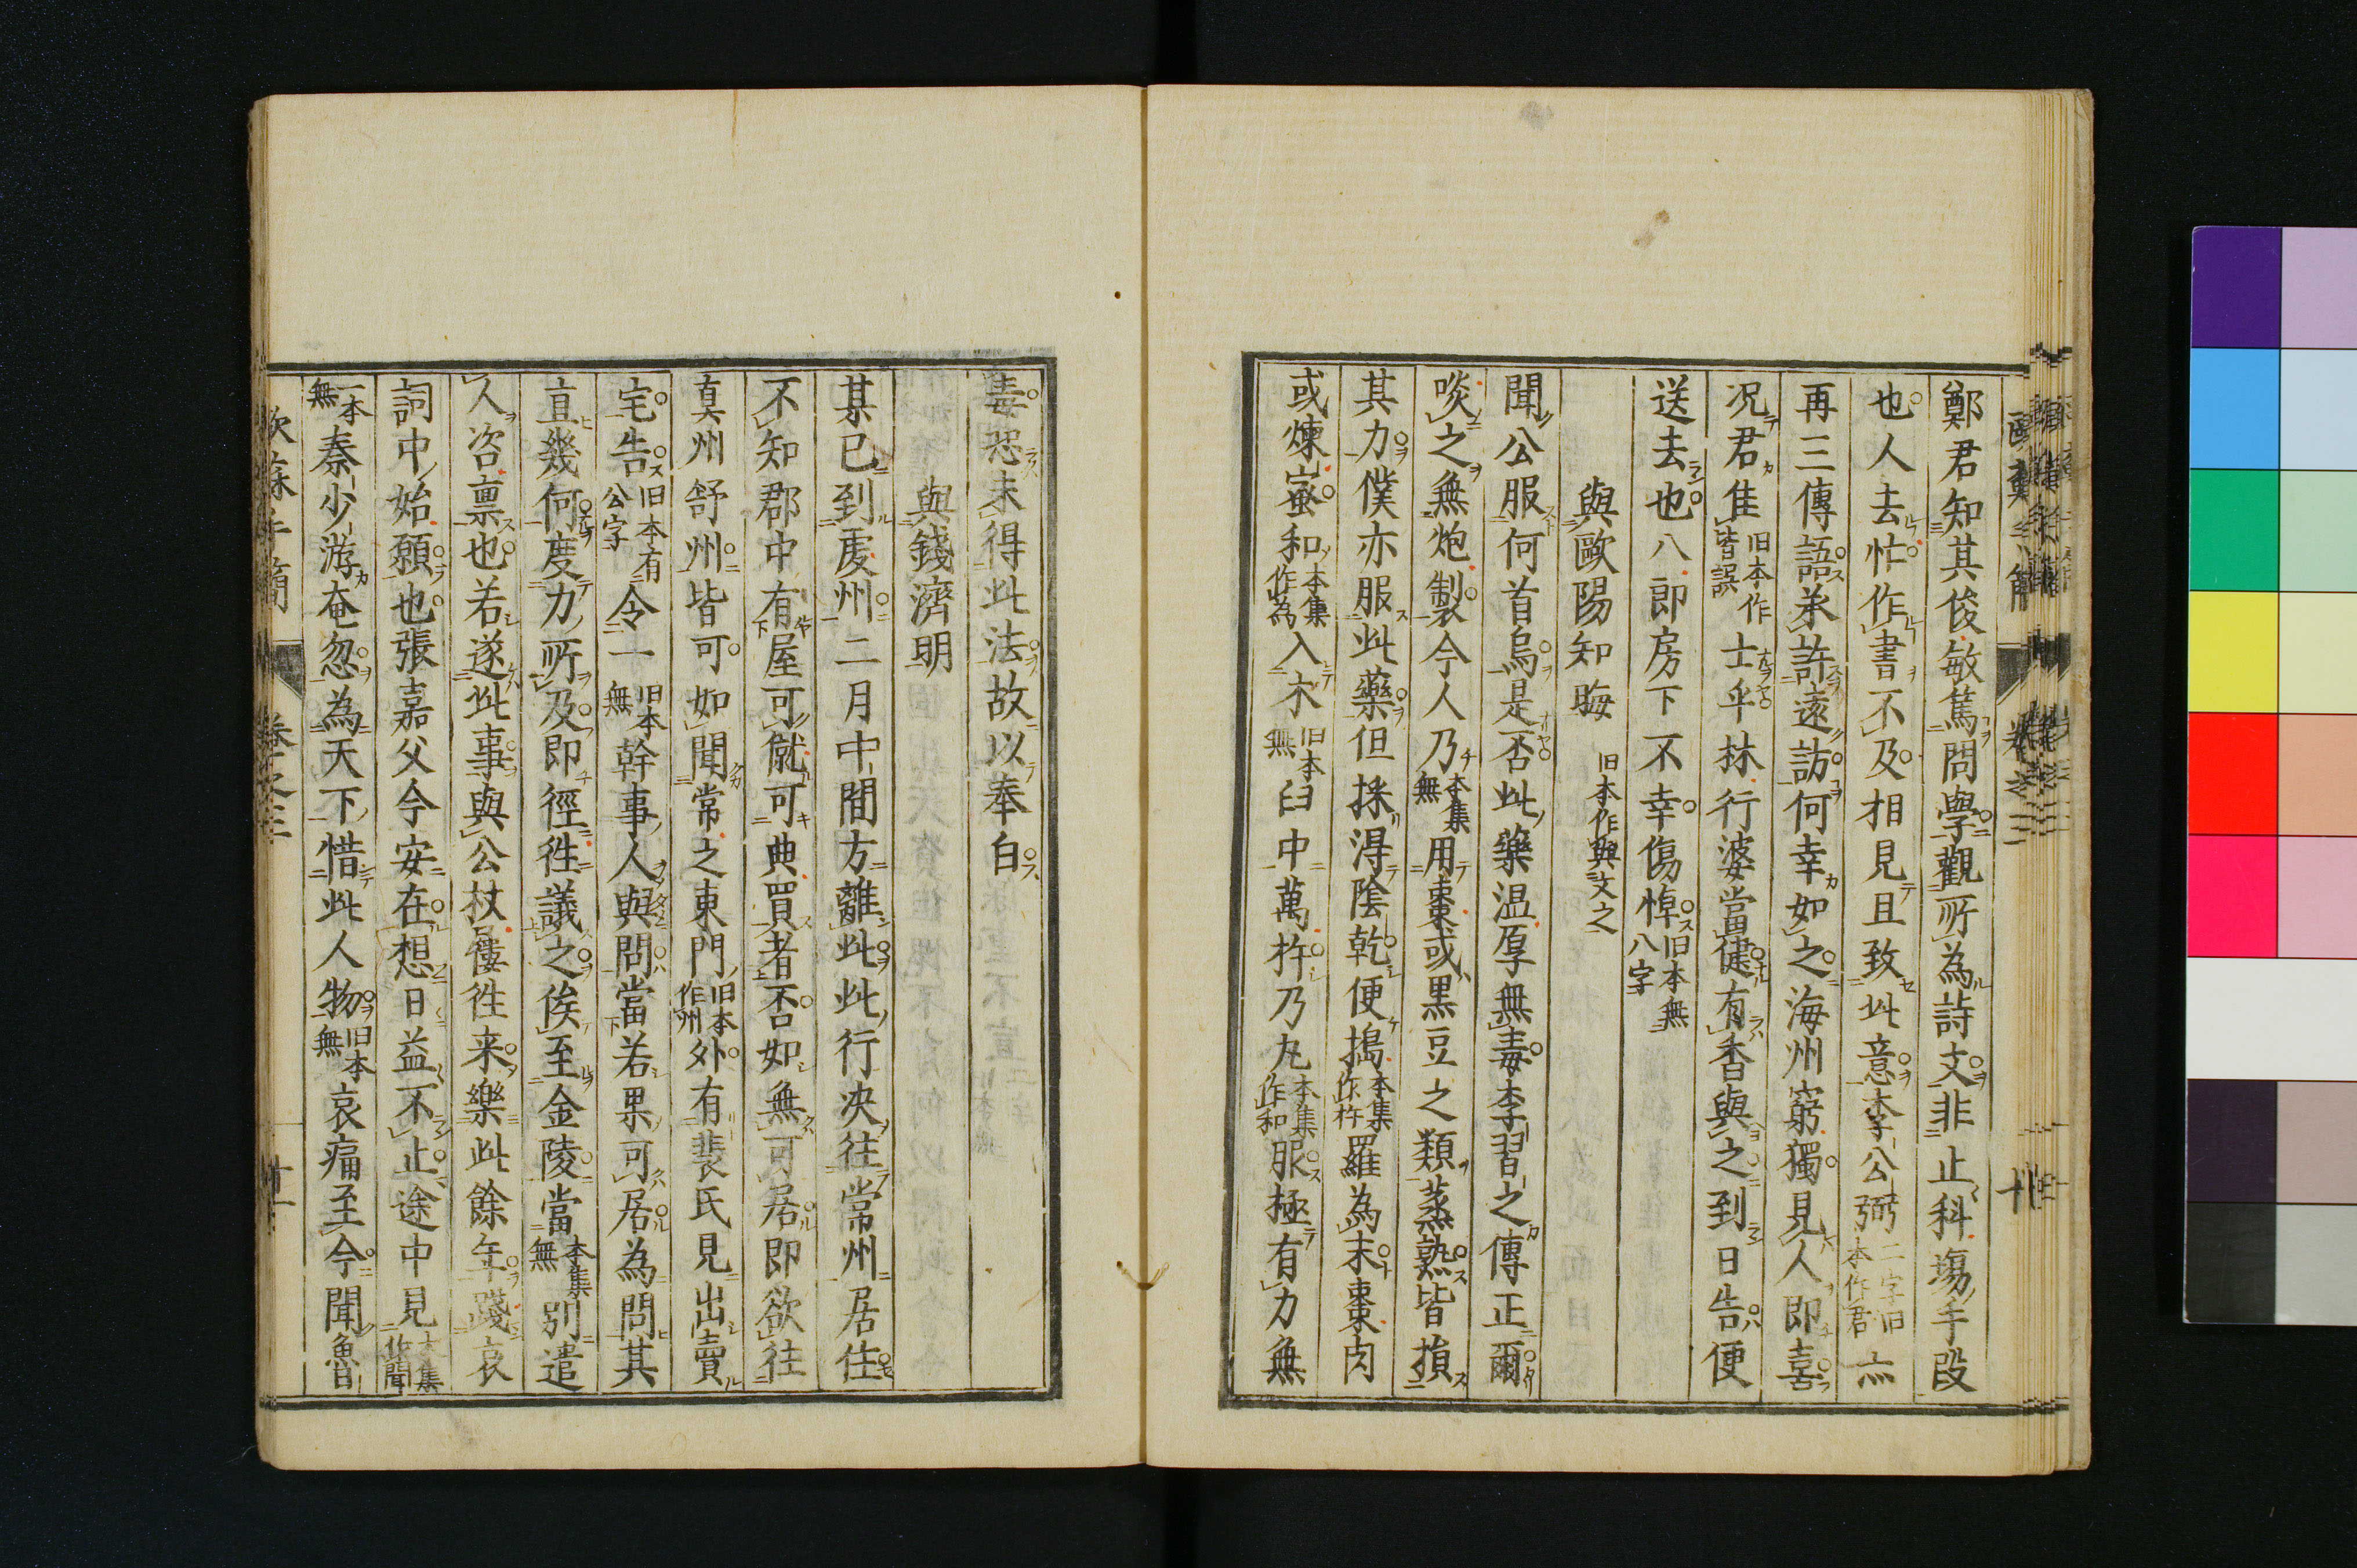 鄭君知其俊敏篤問學觀所為詩文非止科塲手段
也人去忙作書不及相見且致此意李公弼二字旧本作君亦
再三傳語承許遠訪何幸如之海州窮獨見人即喜
况君佳旧本作皆誤士乎林行婆當健有香與之到日告便
送去也八郎房下不幸傷悼旧本無八字
與歐陽知晦旧本作與文之
聞公服何首烏是否此藥温厚無毒李習之傳正爾
啖之無炮製今人乃本集無用棗或黒豆之類蒸熟皆損
其力僕亦服此藥但採得陰乾便搗本集作杵羅為末棗肉
或煉蜜和本集作為入木旧本無臼中萬杵乃丸本集作和服極有力無
毒恐未得此法故以奉白
與錢濟明
某已到虔州二月中間方離此此行决往常州居住
不知郡中有屋可僦可典買者否如無可居即欲往
真州舒州皆可如聞常之東門旧本作州外有裴氏見出賣
宅告旧本有公字令一旧本無幹事人與問當若果可居為問其
直幾何度力所及即徑往議之俟至金陵當本集無別遣
人咨禀也若遂此事與公杖屨往来樂此餘年踐哀
詞中始願也張嘉父今安在想日益不止途中見大集作聞
一本無秦少游奄忽為天下惜此人物旧本無哀痛至今聞魯
歐蘇手簡 卷之三